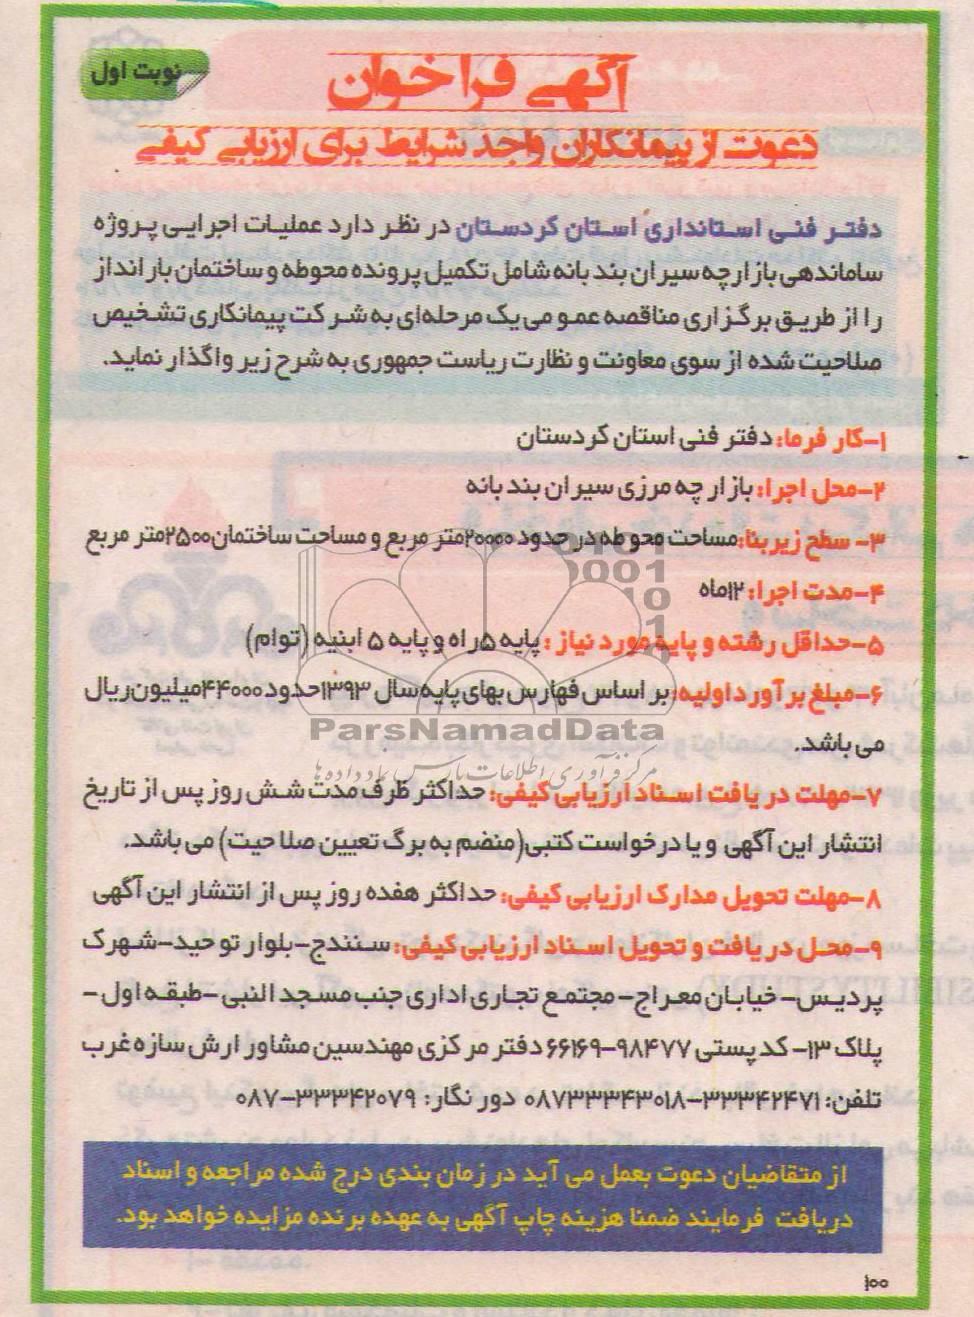 آگهی فراخوان
نوبت اول
دعوت از پیمانکاران واجد شرایط برای ارزیابی کیفی
دفتر فنی استانداری استان کردستان در نظر دارد عملیات اجرایی پروژه
ساماندهی بازارچه سیران بند بانه شامل تکمیل پرونده محوطه و ساختمان بارانداز
را از طریق برگزاری مناقصه عمومی یک مرحله‌ای به شرکت پیمانکاری تشخیص
صلاحیت شده از سوی معاونت و نظارت ریاست جمهوری به شرح زیر واگذار نماید.
۱-کار فرما: دفتر فنی استان کردستان
۲-محل اجرا: بازارچه مرزی سیران بند بانه
۳- سطح زیربنا: مساحت محوطه در حدود ۲۰۰۰۰متر مربع و مساحت ساختمان۲۵۰۰متر مربع
۴-مدت اجرا: ۱۲ماه
۵-حداقل رشته و پایه مورد نیاز : پایه ۵راه و پایه ۵ ابنیه (توام)
۶-مبلغ برآورد اولیه: بر اساس فهارس بهای پایه سال ۱۳۹۳حدود ۴۴۰۰۰میلیون ریال
می باشد.
ParsNamadData
مرکز فرآوری اطلاعات پارس نماد داده ها
۷-مهلت دریافت اسناد ارزیابی کیفی: حداکثر ظرف مدت شش روز پس از تاریخ
انتشار این آگهی و یا درخواست کتبی(منضم به برگ تعیین صلاحیت) می باشد.
۸-مهلت تحویل مدارک ارزیابی کیفی: حداکثر هفده روز پس از انتشار این آگهی
۹-محل دریافت و تحویل اسناد ارزیابی کیفی: سنندج-بلوار توحید-شهرک
پردیس- خیابان معراج- مجتمع تجاری اداری جنب مسجد النبی -طبقه اول-
پلاک ۱۳- کد پستی ۹۸۴۷۷-۶۶۱۶۹ دفتر مرکزی مهندسین مشاور ارش سازه غرب
تلفن: ۳۳۳۴۲۴۷۱-۰۸۷۳۳۳۴۳۰۱۸ دور نگار: ۳۳۳۴۲۰۷۹-۰۸۷
از متقاضیان دعوت بعمل می آید در زمان بندی درج شده مراجعه و اسناد
دریافت فرمایند ضمنا هزینه چاپ آگهی به عهده برنده مزایده خواهد بود.
۱۰۰